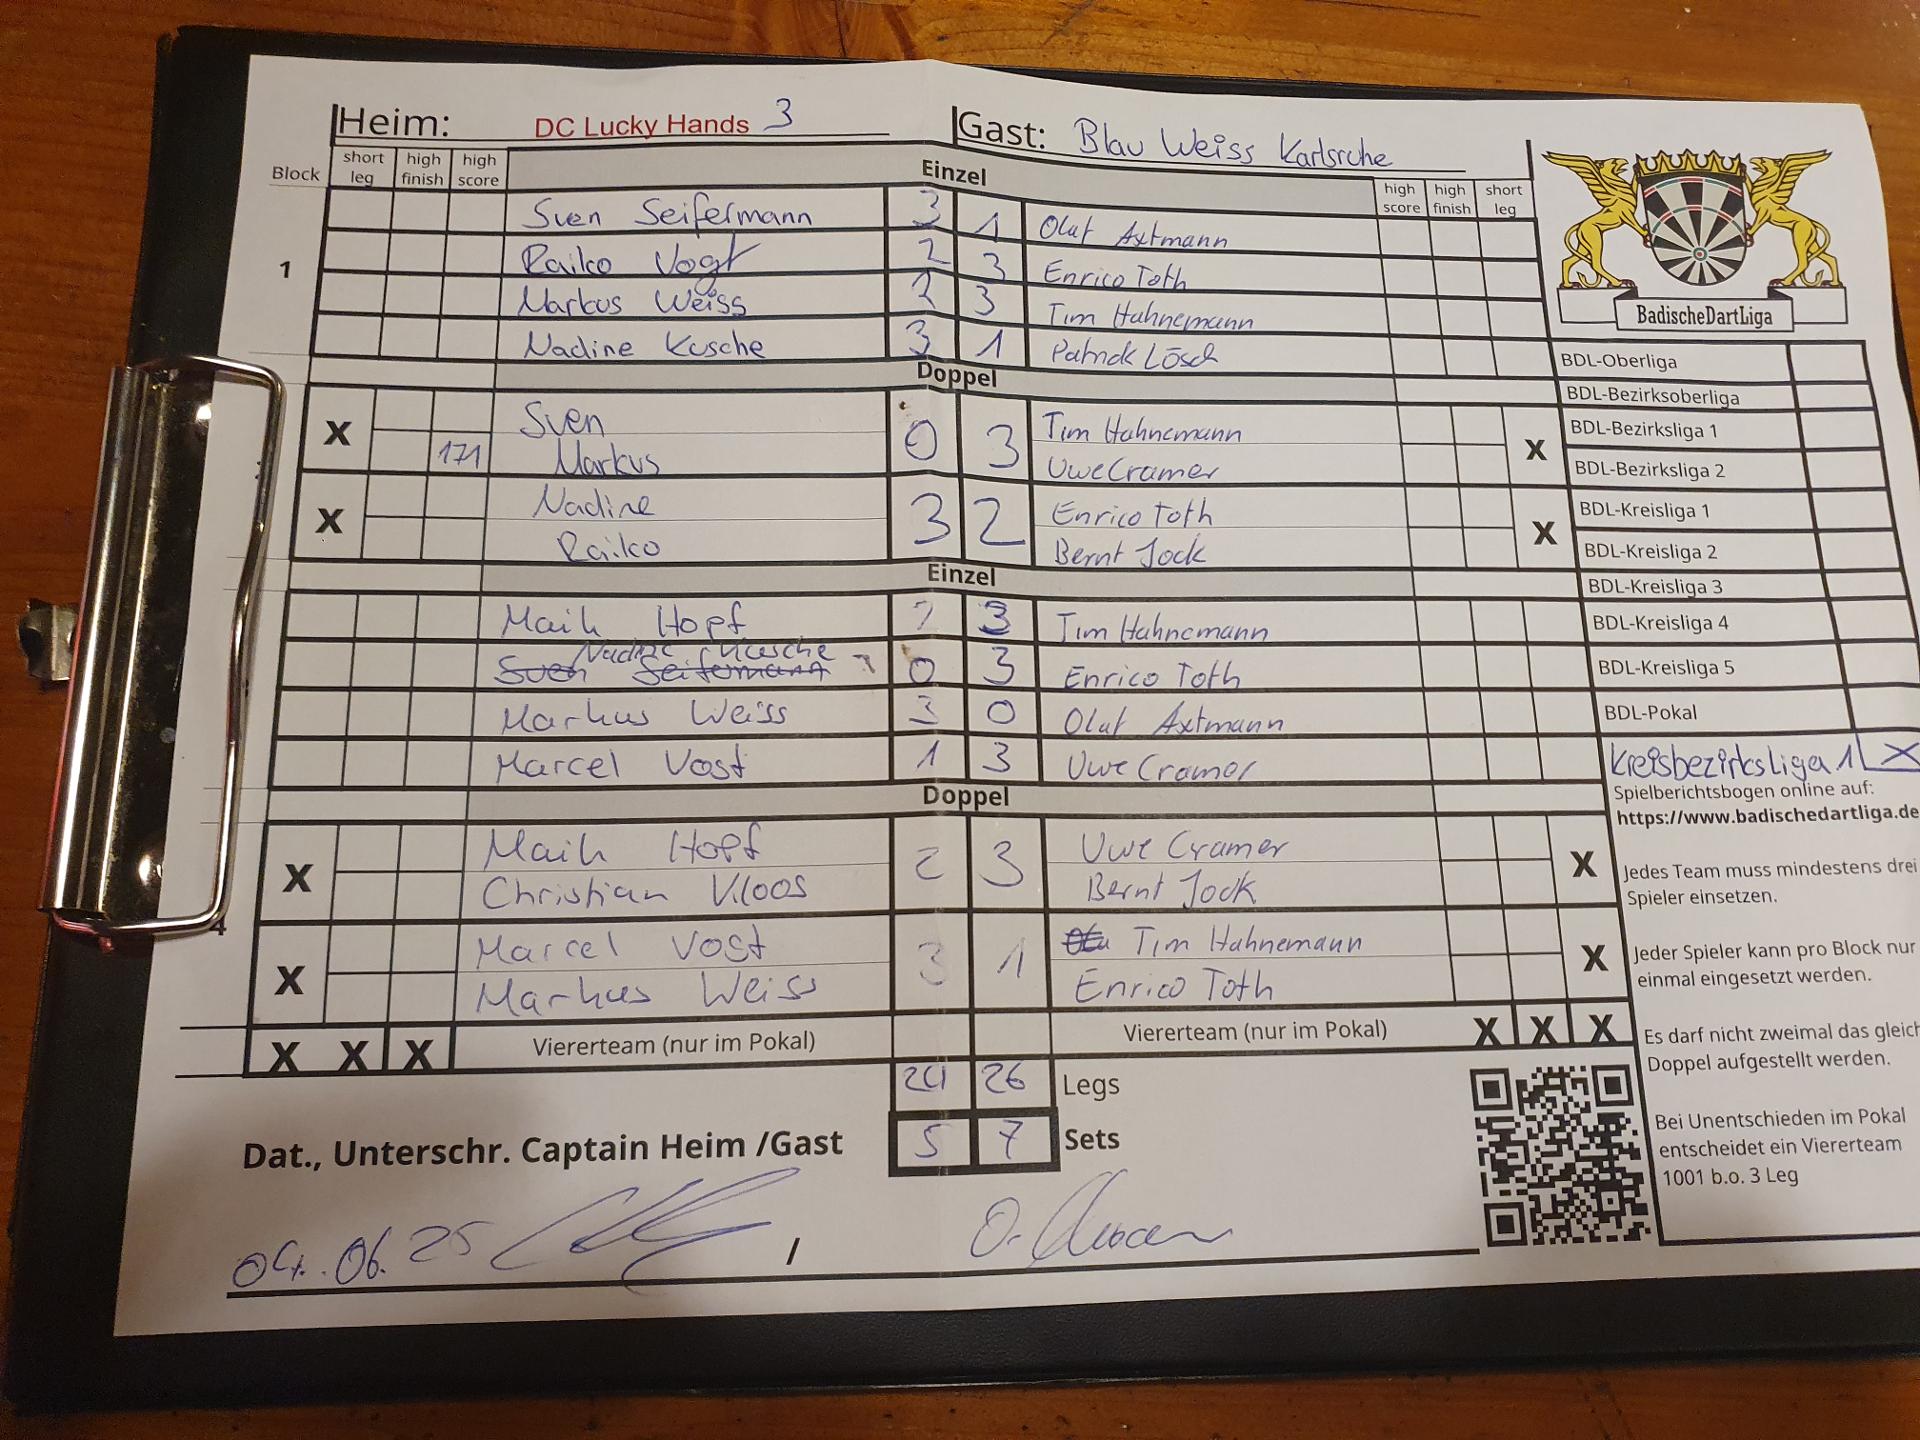 Heim: DC Lucky Hands 3 Gast: Blau Weiss Karlsruhe
Block short leg high finish high score Einzel high score high finish short leg
1
Sven Seifermann 3 1 Olaf Axtmann
Raiko Vogt 2 3 Enrico Toth
Markus Weiss 2 3 Tim Hahnemann
Nadine Kusche 3 1 Patrick Lösch
Doppel
X Sven 0 3 Tim Hahnemann X
171 Markus Uwe Cramer
X Nadine 3 2 Enrico Toth X
Raiko Bernt Jock
Einzel
Maik Hopf 3 Tim Hahnemann
Nadine Kusche
Sven Seifermann 0 3 Enrico Toth
Markus Weiss 3 0 Olaf Axtmann
Marcel Vogt 1 3 Uwe Cramer
Doppel
X Maik Hopf 2 3 Uwe Cramer X
Christian Kloos Bernt Jock
4
X Marcel Vogt 3 1 Tim Hahnemann X
Markus Weiss Enrico Toth
X X X Viererteam (nur im Pokal) Viererteam (nur im Pokal) X X X
24 26 Legs
5 7 Sets
Dat., Unterschr. Captain Heim /Gast
04.06.25 /
BadischeDartLiga
BDL-Oberliga
BDL-Bezirksoberliga
BDL-Bezirksliga 1
BDL-Bezirksliga 2
BDL-Kreisliga 1
BDL-Kreisliga 2
BDL-Kreisliga 3
BDL-Kreisliga 4
BDL-Kreisliga 5
BDL-Pokal
Kreisbezirksliga 1 X
Spielberichtsbogen online auf:
https://www.badischedartliga.de
Jedes Team muss mindestens drei
Spieler einsetzen.
Jeder Spieler kann pro Block nur
einmal eingesetzt werden.
Es darf nicht zweimal das gleich
Doppel aufgestellt werden.
Bei Unentschieden im Pokal
entscheidet ein Viererteam
1001 b.o. 3 Leg